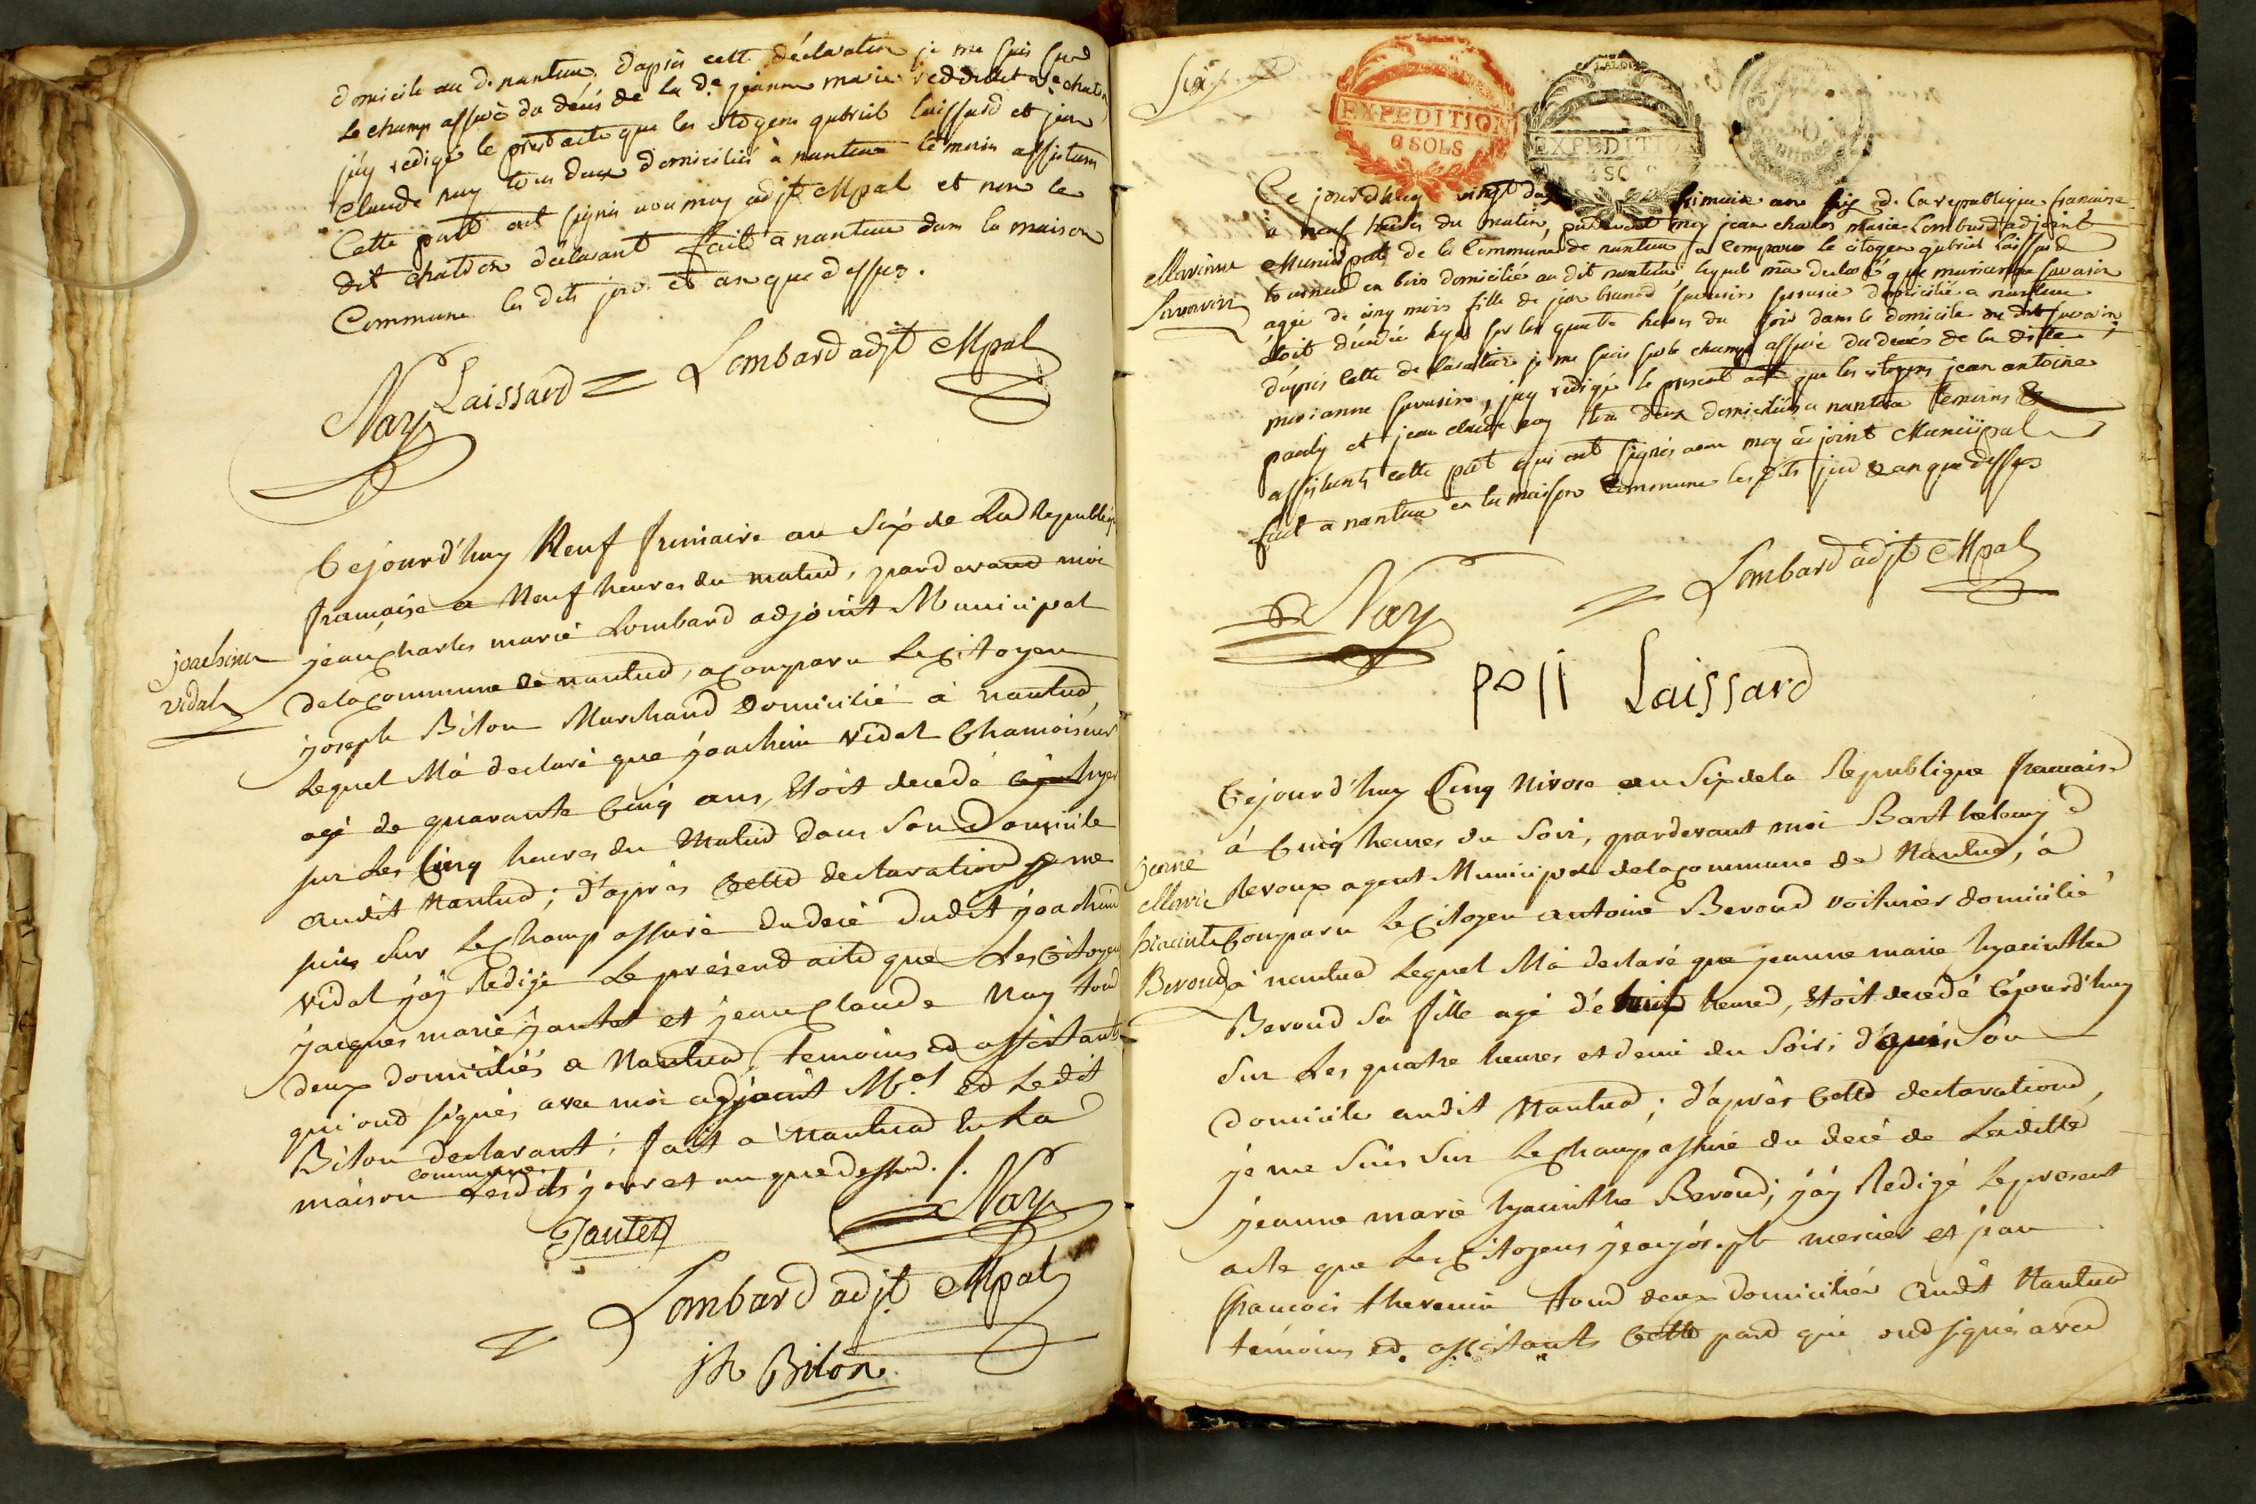 domicile au d. nantua, dapres cett déclaration je me suis sur
le champ assuré du décés de la d.e jeanne marie
j'ay rédigé le pnt acte que les citoyens gabriel laissard et jean
Claude nay tous deux domiciliés à nantua témoins assistans
Cette part ont signés avec moy adjt Mpal et non le
dit chatdon declarant fait a nantua dans la maison
Commune les dits jour et an que dessus.
Nay Laissard = Lombard adjt Mpal
joachim
vidal
Cejourd'huy Neuf frimaire an Six de La Republiq
francaise a Neuf heures du matin, pardevand moi
jean Charles marie Lombard adjoint Municipal
de la Commune de nantua, a Comparu le Citoyen
joseph Bilon Marchand domicilié à nantua,
lequel M'a declaré que joachim vidal Chamoiseur
agé de quarante Cinq ans, Etoit decedé hyer
sur les Cinq heures du Matin dans Son Domicile
audit Nantua; d'après Cette declaration je me
suis Sur le Champ assuré du decé dudit joachim
vidal j'aÿ Redigé le présend acte que les Citoyens
jacques marie jantet et jean Claude Nay tous
deux domiciliés a Nantua, temoins ed assistants
qui ond signés avec moi adjoint M.al ed le dit
Bilon declarant; fait a Nantua en La
maison commune lesdits jour et an que dessus./.
Jantet Nay
= Lombard adjt Mpal
jh Bilon
Six
EXPEDITION
6 SOLS
LA LOI
EXPEDITION
50
centimes
Marianne
Savarin
Ce jourd'huy vingt frimaire an six de la republique francaise
à neuf heures du matin, pardevant moy jean charles marie Lombard adjoint
Municipal de la Commune de nantua a comparu le citoyen gabriel Laissard
tourneur en bois domicilié au dit nantua, lequel m'a declaré que marianne savarin
agée de cinq mois fille de jean savarin domicilié a nantua
étoit décédée hyer sur les quatre heures du soir dans le domicile du dit savarin
d'apres cette declaration je me suis sur le champ assuré du décés de la ditte
marianne savarin, j'ay rédigé le present acte que les citoyens jean antoine
pauly et jean claude nay tous deux domiciliés a nantua temoins &
assistants cette part qui ont signés avec moy adjoint Municipal
fait a nantua en la maison Commune les dits jour & an que dessus
Nay = Lombard adjt Mpal
Laissard
jeanne
Marie
hiacinte
Beroud
Cejourd'huy Cinq Nivose an Six de la Republique francaise
à Cinq heures du Soir, pardevant moi Barthelemy
Revoux agent Municipal de la Commune de Nantua, à
Comparu le Citoyen antoine Beroud voiturier domicilié
à nantua lequel M'a declaré que jeanne marie hyacinthe
Beroud Sa fille agé de huit heures, Etoit decedé Cejourd'huy
Sur les quatre heures et demi du Soir; dans Son
Domicile audit Nantua; d'après Cette declaration,
je me Suis Sur le Champ assuré du decé de Laditte
jeanne marie hyacinthe Beroud; j'aÿ Redigé le present
acte que les Citoyens jean joseph mercier et jean
francois thevenin tous deux domiciliés audit Nantua
temoins ed assistants Cette pard qui ond signés avec